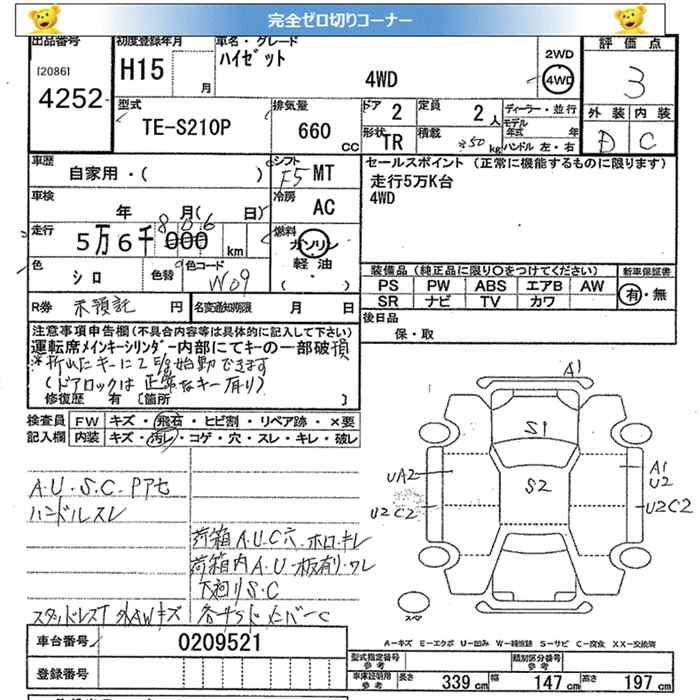 完全ゼロ切りコーナー
出品番号 初度登録年月 車名・グレード 評価点
[2086] H15 月 ハイゼット 4WD 2WD 4WD 3
4252
型式 TE-S210P 排気量 660 CC ドア 2 定員 2人 ディーラー・並行 外装 内装
形状 TR 積載 350 kg モデル年式 年 D C
ハンドル 左・右
車歴 自家用・( ) シフト F5 MT セールスポイント (正常に機能するものに限ります)
走行5万K台
4WD
車検 年 月( 日) 冷房 AC
走行 5万6千000 806 km 燃料 ガソリン 軽油 ・( )
色 シロ 色替 色コード W09
装備品 (純正品に限り○をつけてください) 新車保証書
PS PW ABS エアB AW 有・無
SR ナビ TV カワ
R券 未預託 円 名変通知期限 月 日
後日品 保・取
注意事項申告欄(不具合内容等は具体的に記入して下さい)
運転席メインキーシリンダー内部にてキーの一部破損
(ドアロックは正常なキー有り)
修復歴 有 [箇所 ]
検査員 FW キズ・飛石・ヒビ割・リペア跡・×要
記入欄 内装 キズ・汚レ・コゲ・穴・スレ・キレ・破レ
A1
S1
UA2 S2 A1 U2
U2C2 U2C2
A・U・S・C・Pアセ
ハンドルスレ
荷箱A.U.C穴・ホロ・キレ
荷箱内A・U・板有り・ワレ
下廻りS・C
スタッドレスT 外AWキズ 各サイドメンバーC
スペア
A-キズ E-エクボ U-凹み W-補修跡 S-サビ C-腐食 XX-交換済
車台番号 0209521
登録番号
型式指定番号 参考 類別区分番号 参考
車庫証明用 参考 長さ 339 cm 幅 147 cm 高さ 197 cm